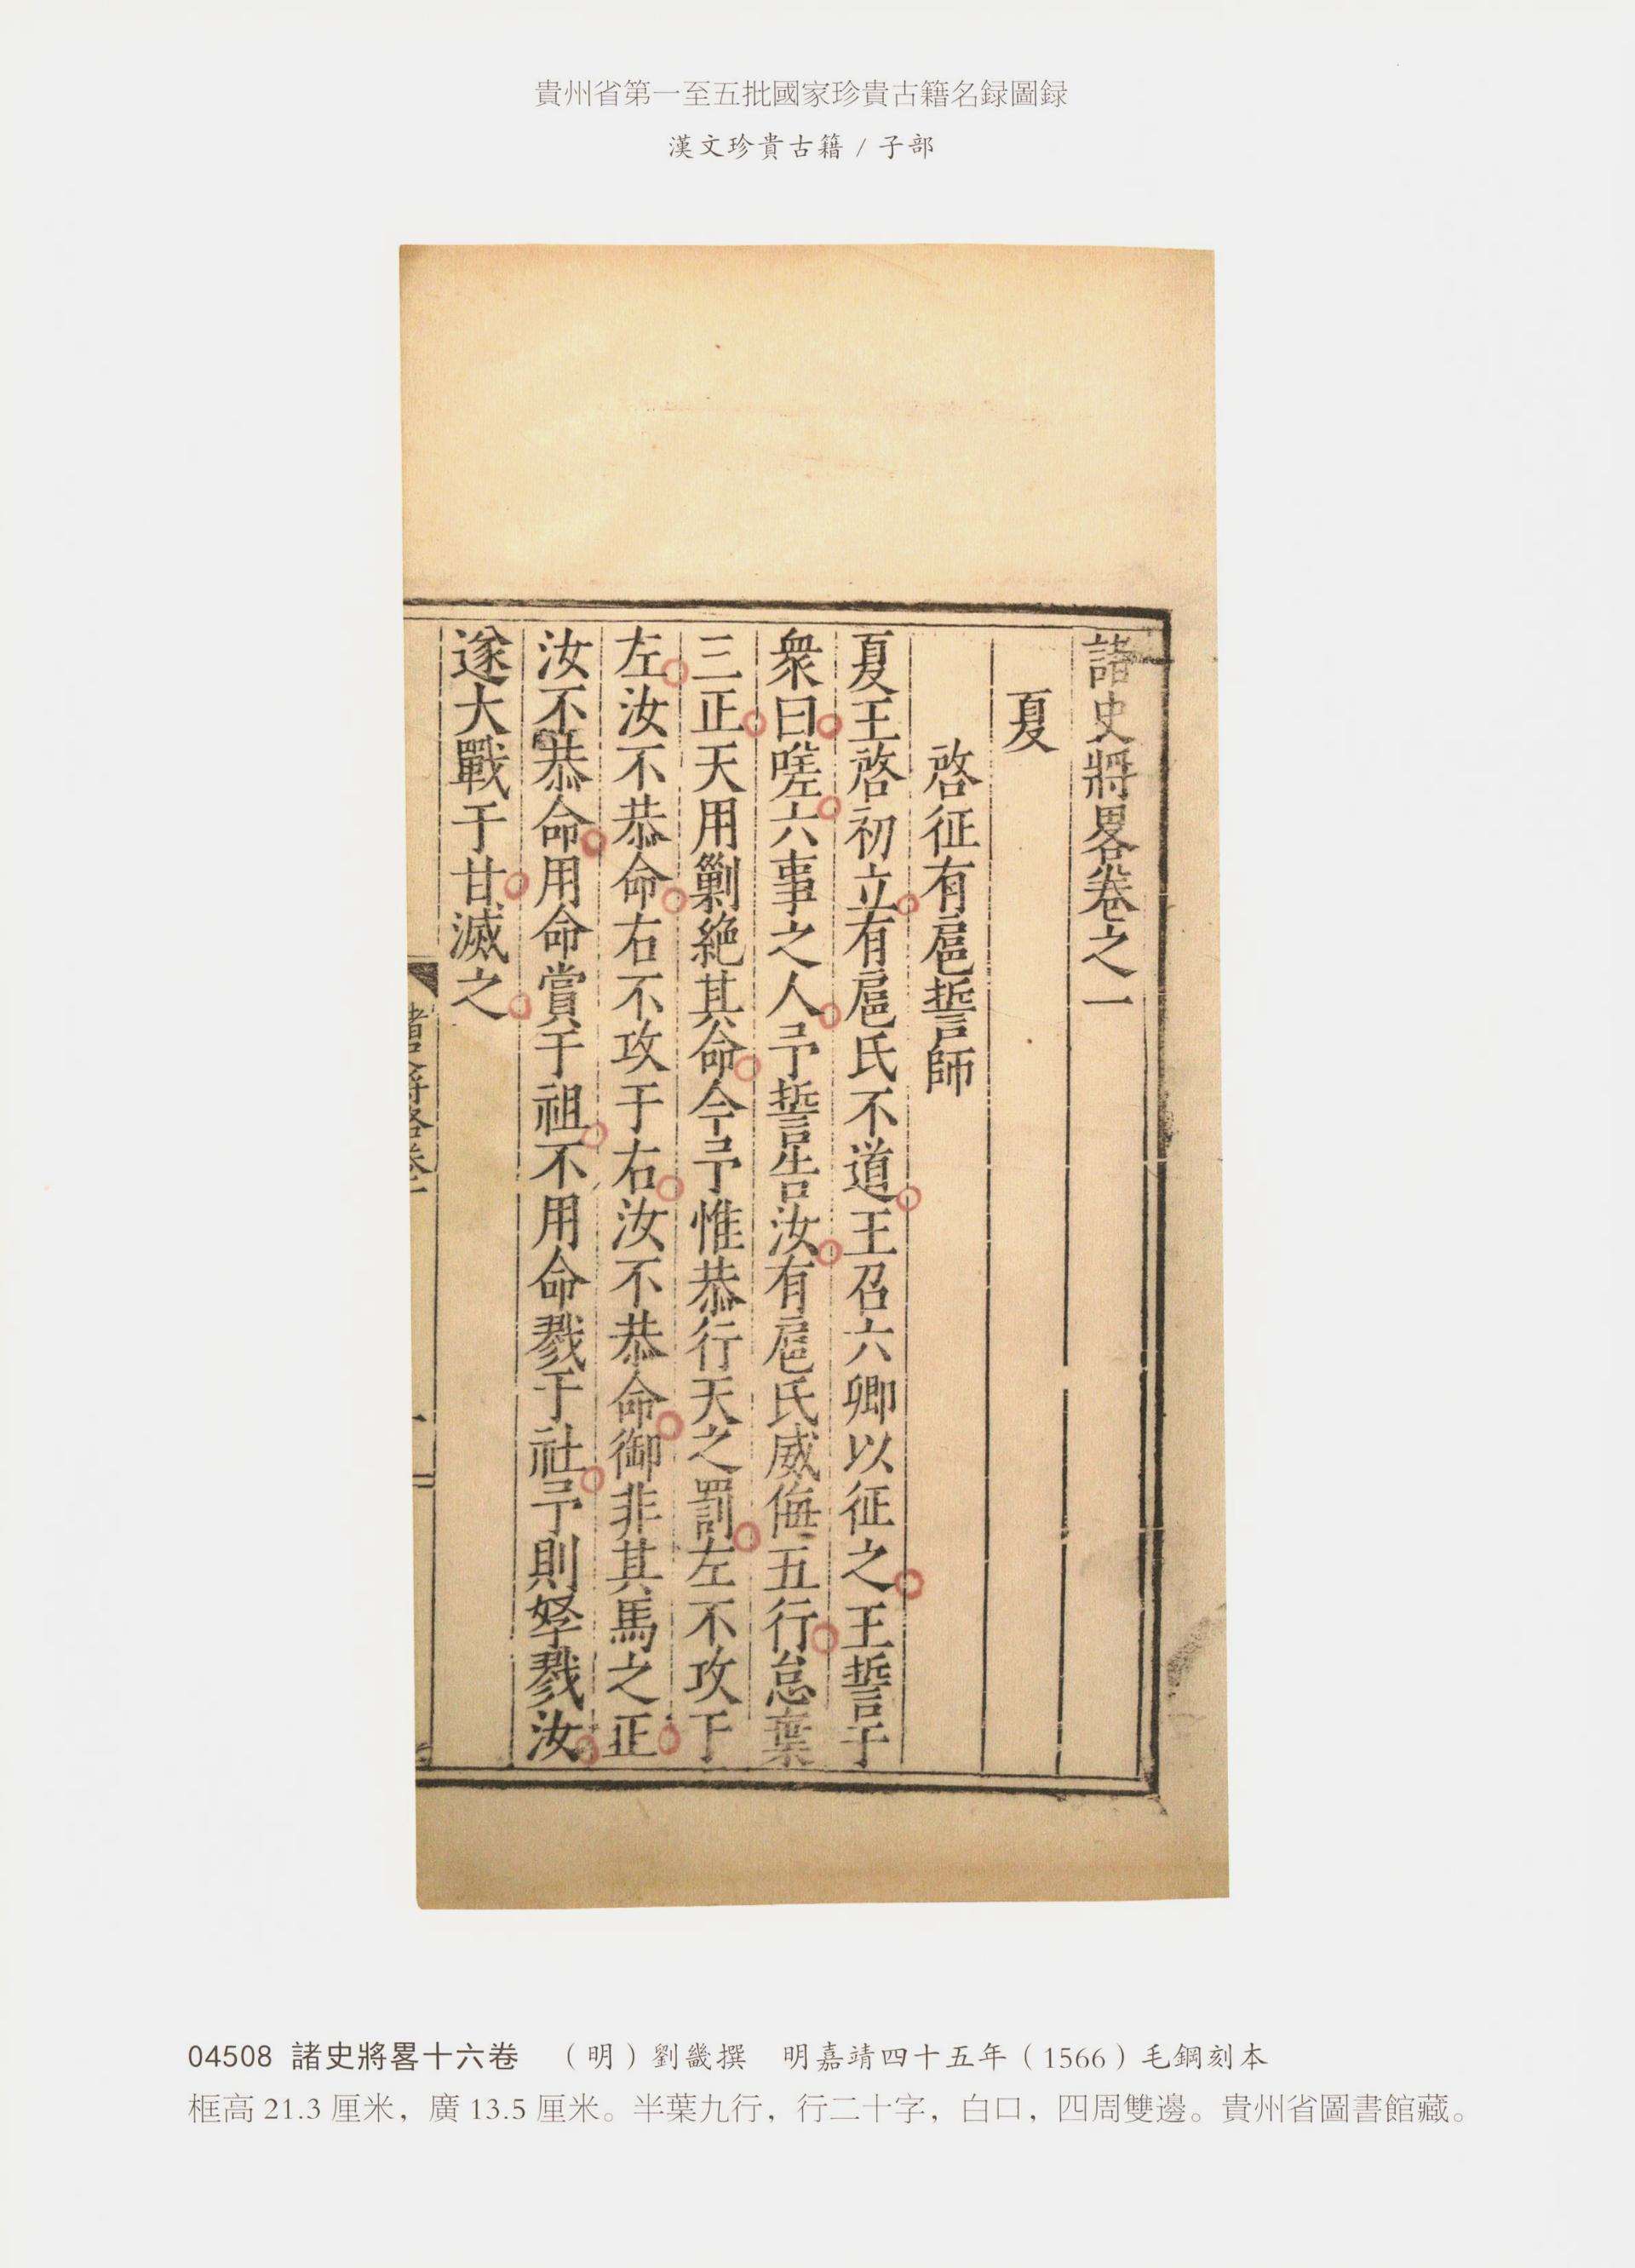 貴州省第一至五批國家珍貴古籍名録圖録
漢文珍貴古籍 / 子部
諸史將畧卷之一
夏
啓征有扈誓師
夏王啓初立有扈氏不道王召六卿以征之王誓于
衆曰嗟六事之人予誓告汝有扈氏威侮五行怠棄
三正天用剿絕其命今予惟恭行天之罰左不攻于
左汝不恭命右不攻于右汝不恭命御非其馬之正
汝不恭命用命賞于祖不用命戮于社予則孥戮汝
遂大戰于甘滅之
04508 諸史將畧十六卷 （明）劉畿撰 明嘉靖四十五年（1566）毛鋼刻本
框高 21.3 厘米，廣 13.5 厘米。半葉九行，行二十字，白口，四周雙邊。貴州省圖書館藏。